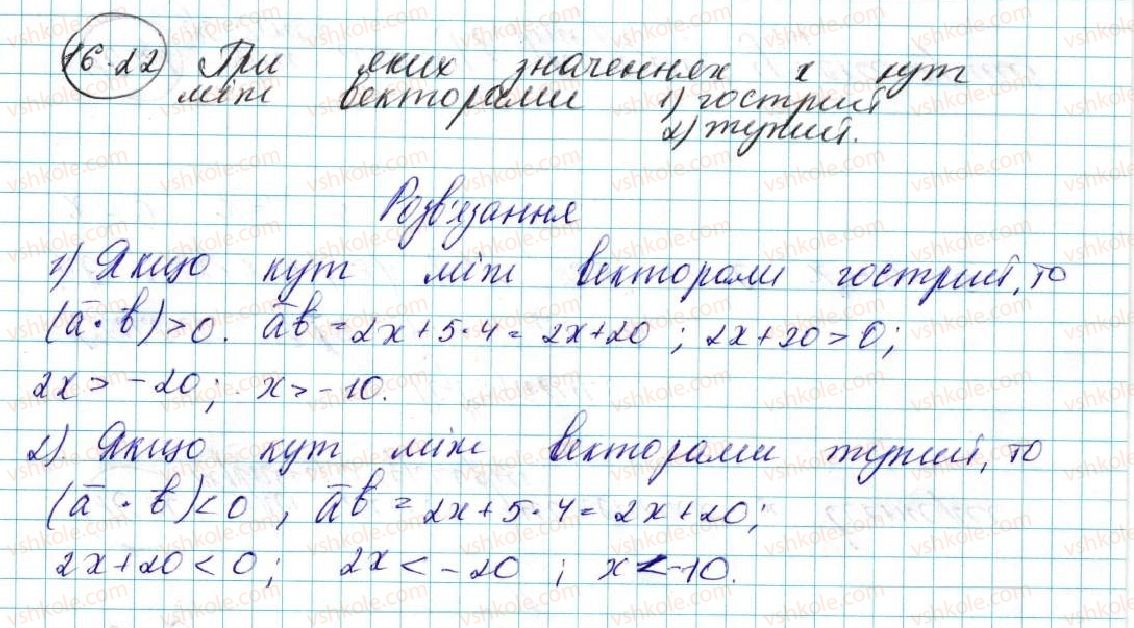 16.22 При яких значеннях x кут
між векторами 1) гострий
2) тупий.
Розв'язання
1) Якщо кут між векторами гострий, то
(a̅ · b̅) > 0. a̅b̅ = 2x + 5·4 = 2x+20 ; 2x+20 > 0;
2x > -20; x > -10.
2) Якщо кут між векторами тупий, то
(a̅ · b̅) < 0 , a̅b̅ = 2x + 5·4 = 2x+20;
2x+20 < 0; 2x < -20 ; x < -10.